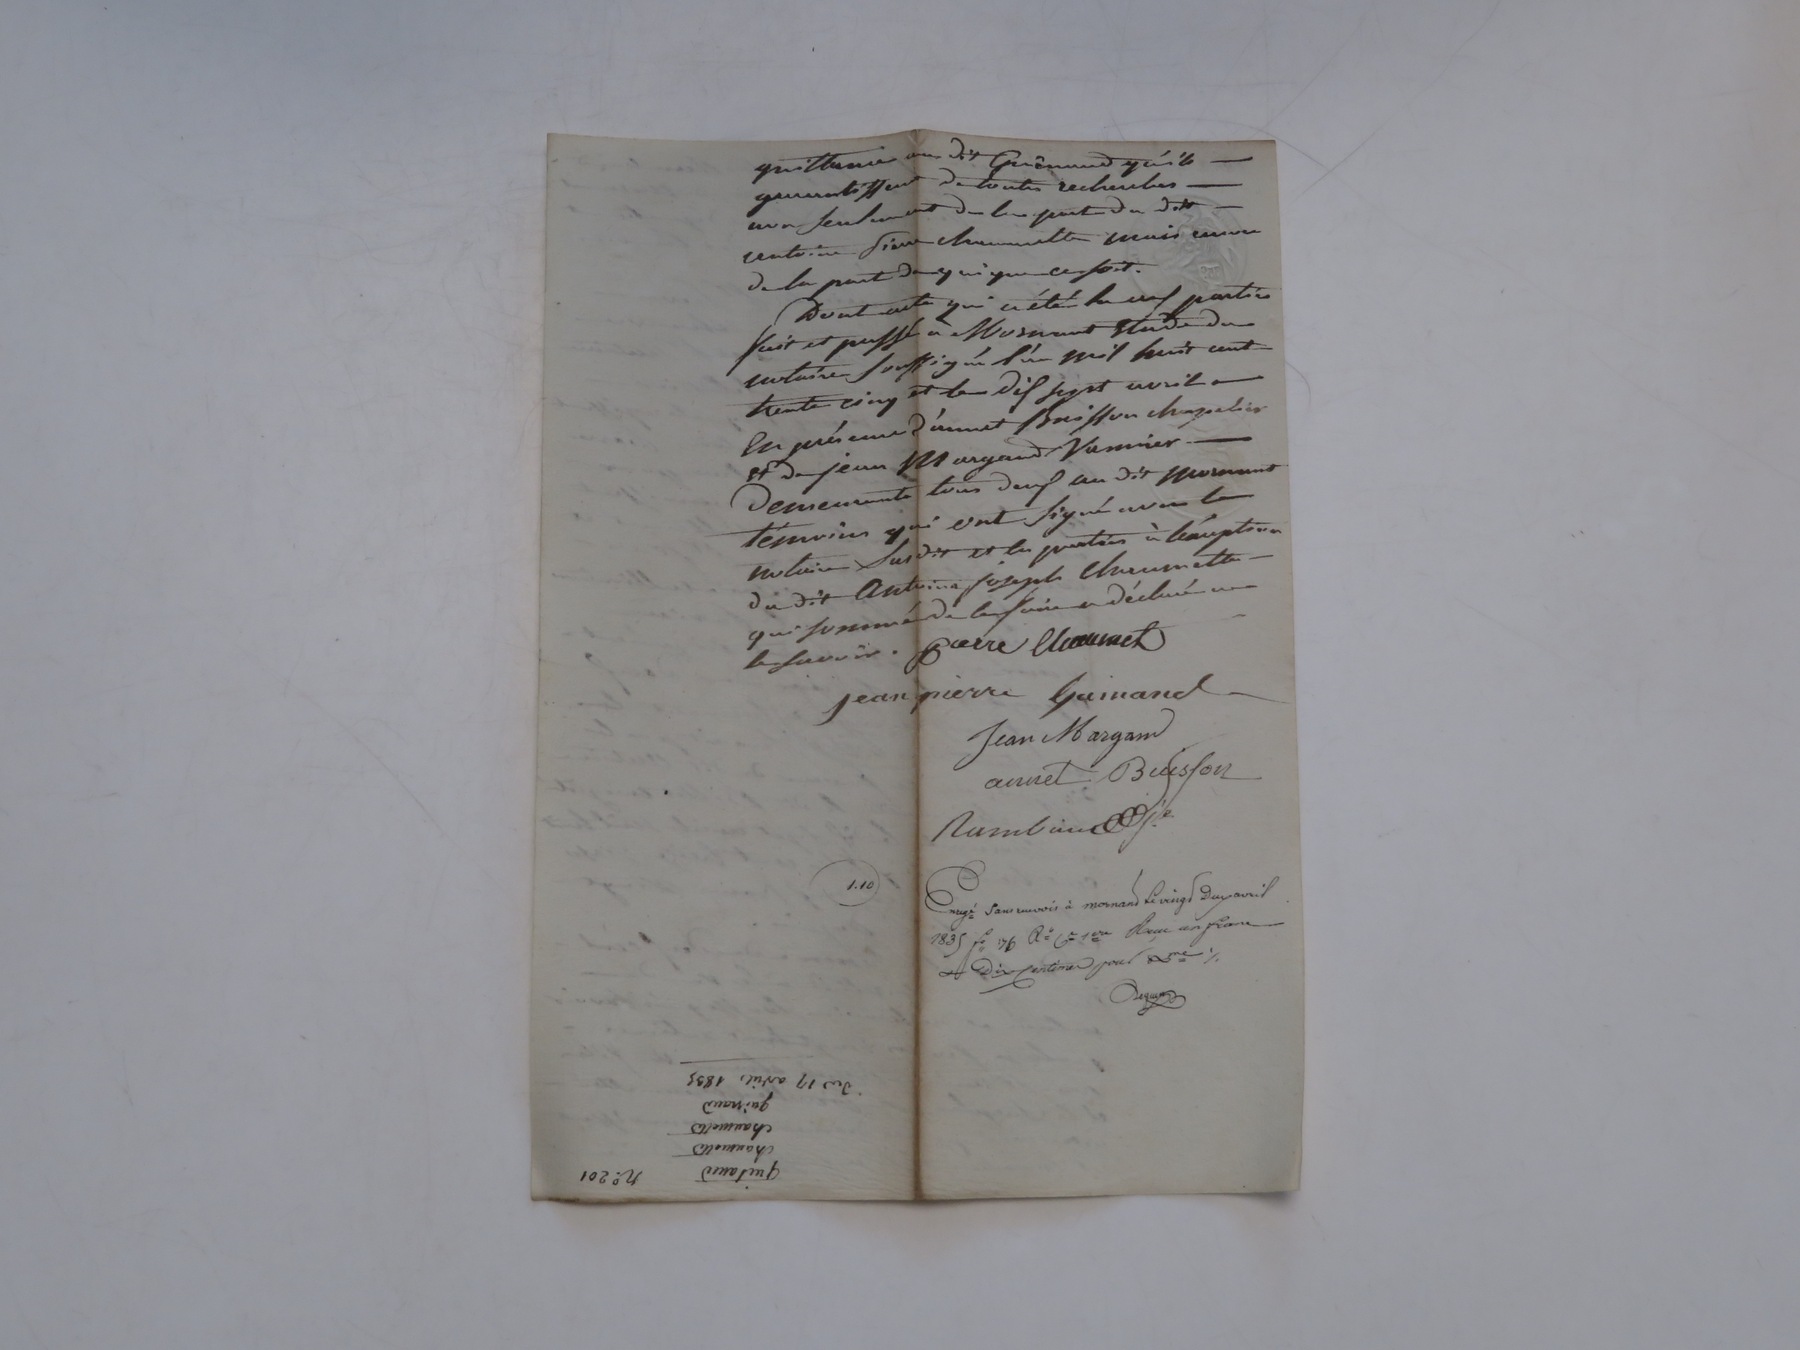 quittance au dit Guimand qu'ils
garantissent de toutes recherches
non seulement de la part du dit
antoine pierre chaumette mais encore
de la part de qui que ce soit.
Dont acte qui a été lu aux parties
fait et passé à Mornant Etude du
notaire soussigné l'an mil huit cent
trente cinq et le dix sept avril
En présence d'annet Buisson chapelier
et de jean Margand Vannier
demeurants tous deux au dit Mornant
témoins qui ont signé avec le
notaire susdit et les parties à l'éxception
du dit Antoine joseph chaumette
qui sommé de le faire a déclaré ne
le savoir. pierre Chaumet
jean pierre Guimand
Jean Margand
annet Buisson
1.10
Enregé sans renvois à mornand le vingt Deux avril
1835 fo 176 Ro Ce 1ere Reçu un franc
Dix centimes pour Dme
No 201
quitancé
chaumette
chaumette
guimand
du 17 avril 1835